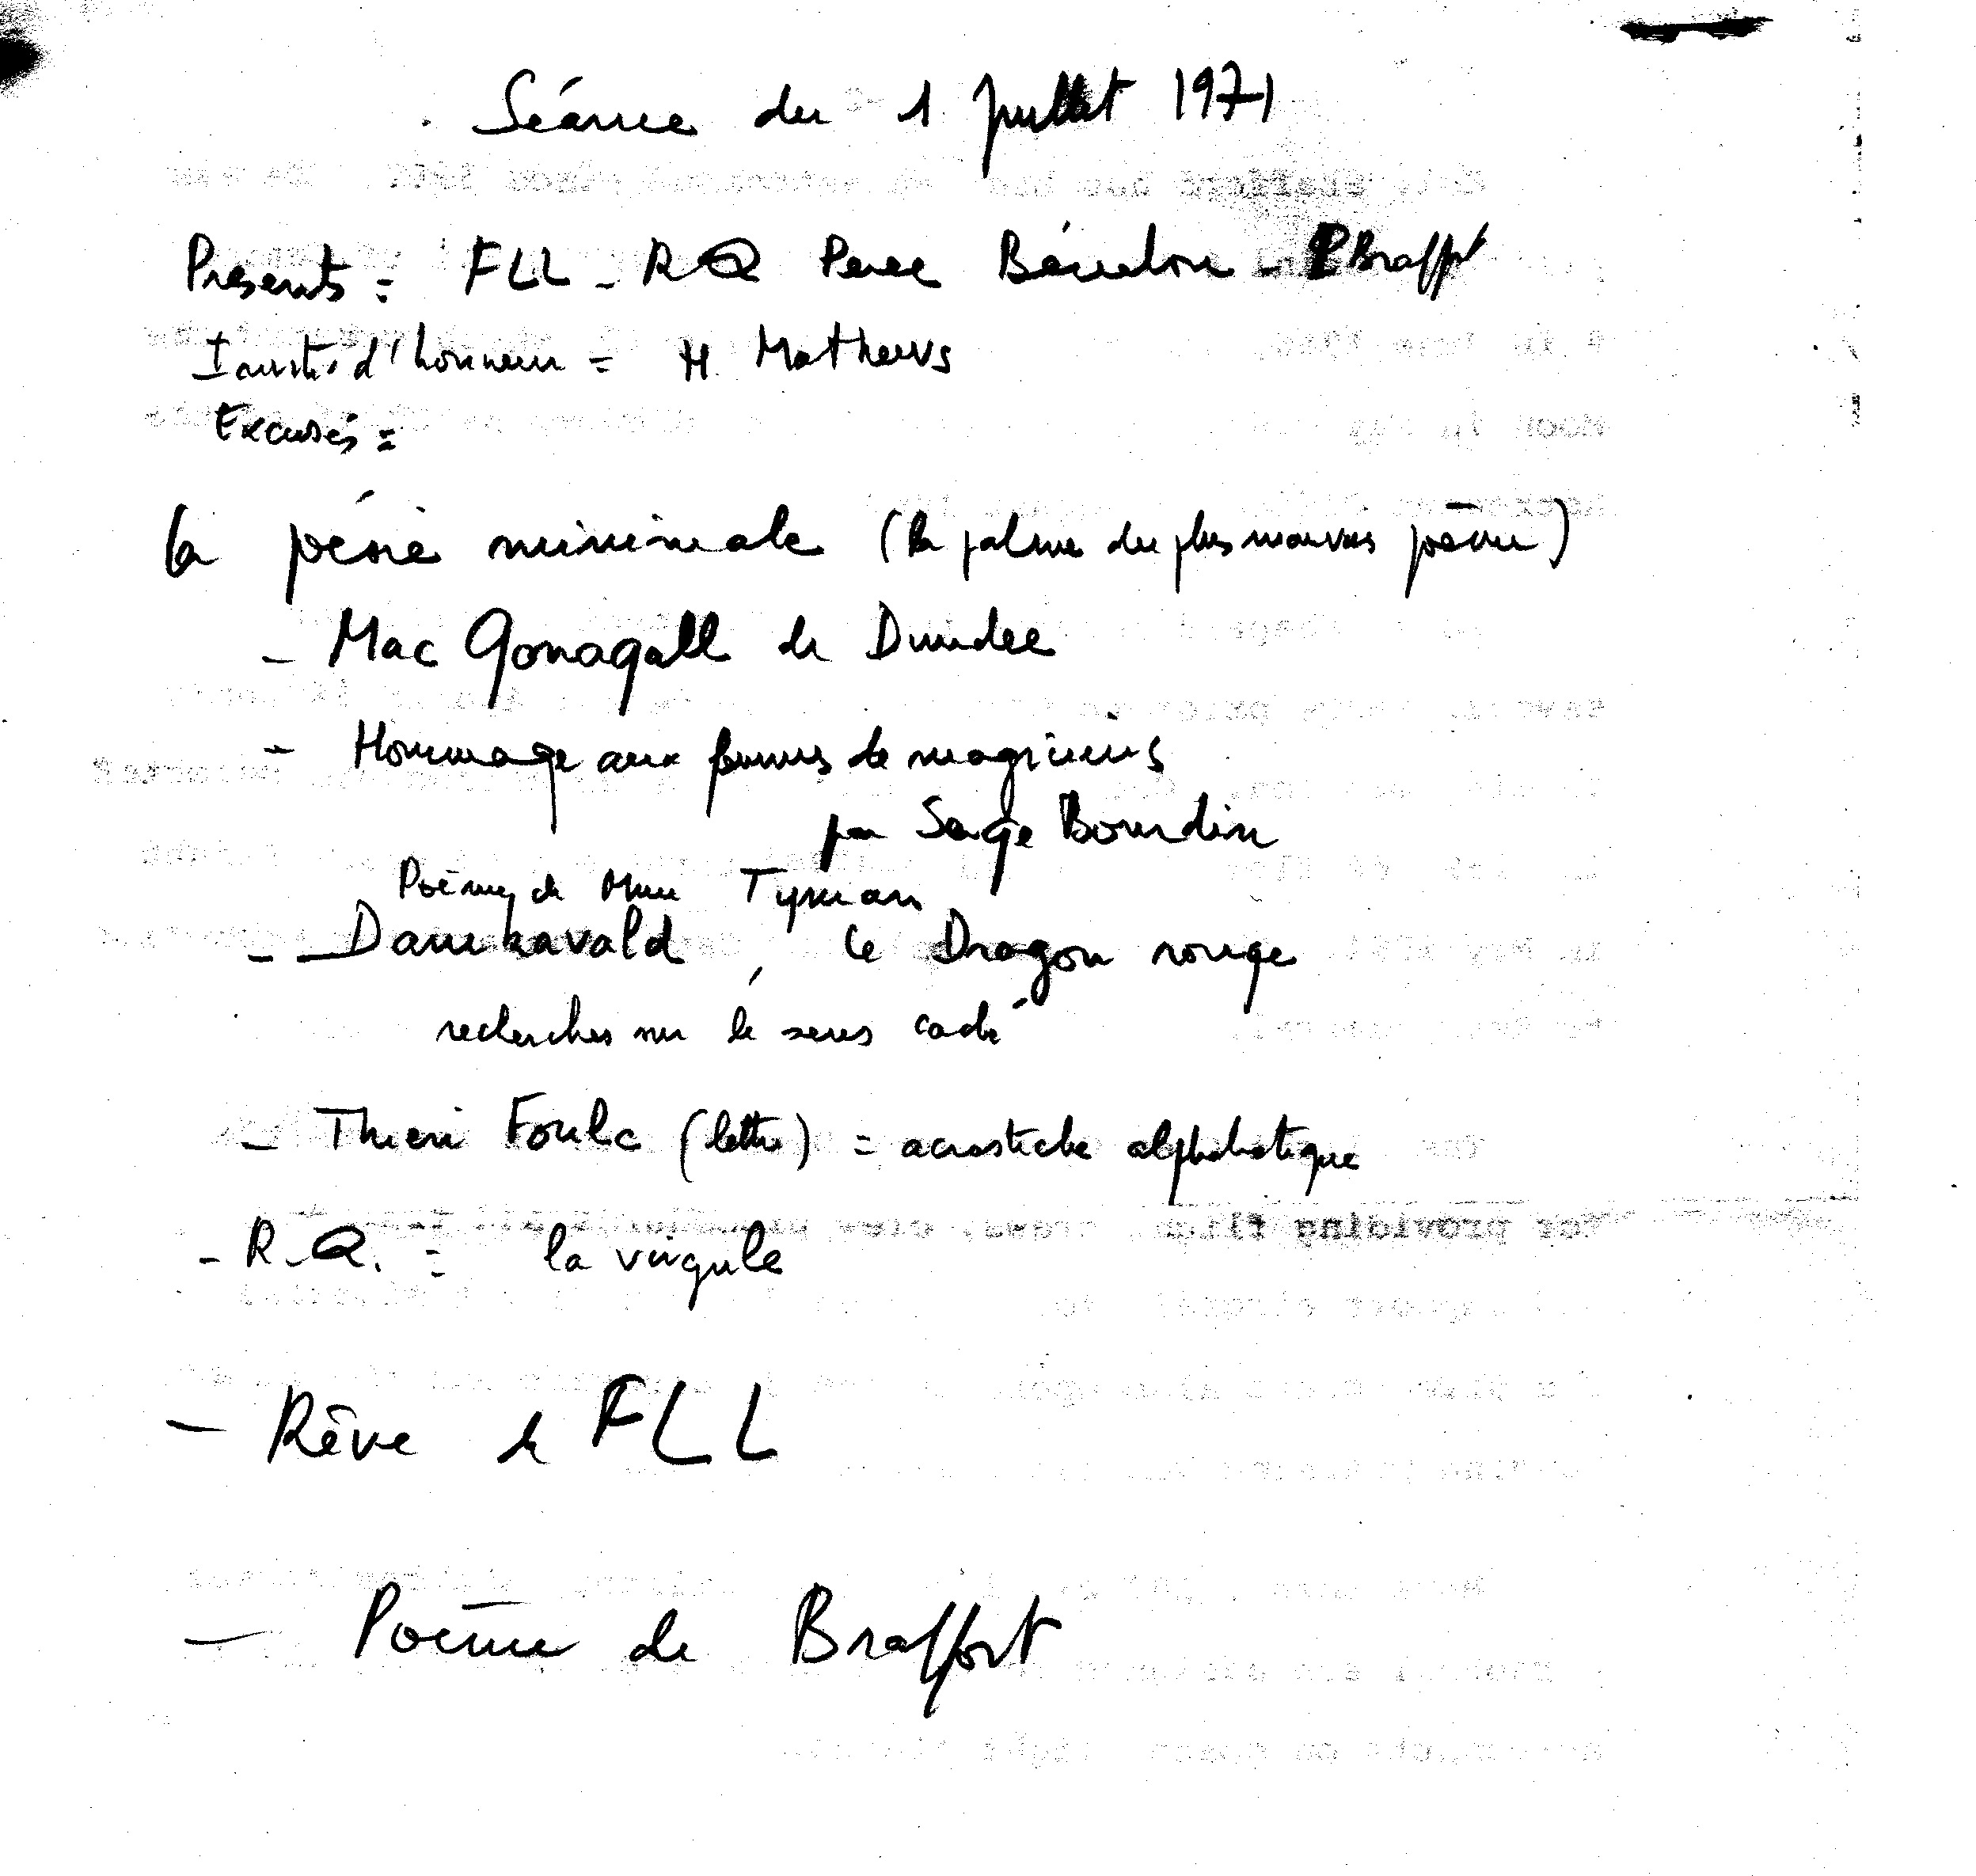 Séance du 1 Juillet 1971
Présents = FLL - RQ Perec Bénabou - P Braffort
Invité d'honneur = H Mathews
Excusés =
la poésie minimale (la palme du plus mauvais poème)
- Mac Gonagall de Dundee
- Hommage aux femmes de magiciens
par Serge Bourdin
Poèmes de Mme Tyman
- Damkavald, le Dragon rouge
recherches sur le sens caché
- Thieri Foulc (lettre) = acrostiche alphabétique
- R.Q. = la virgule
- Rêve de FLL
- Poème de Braffort